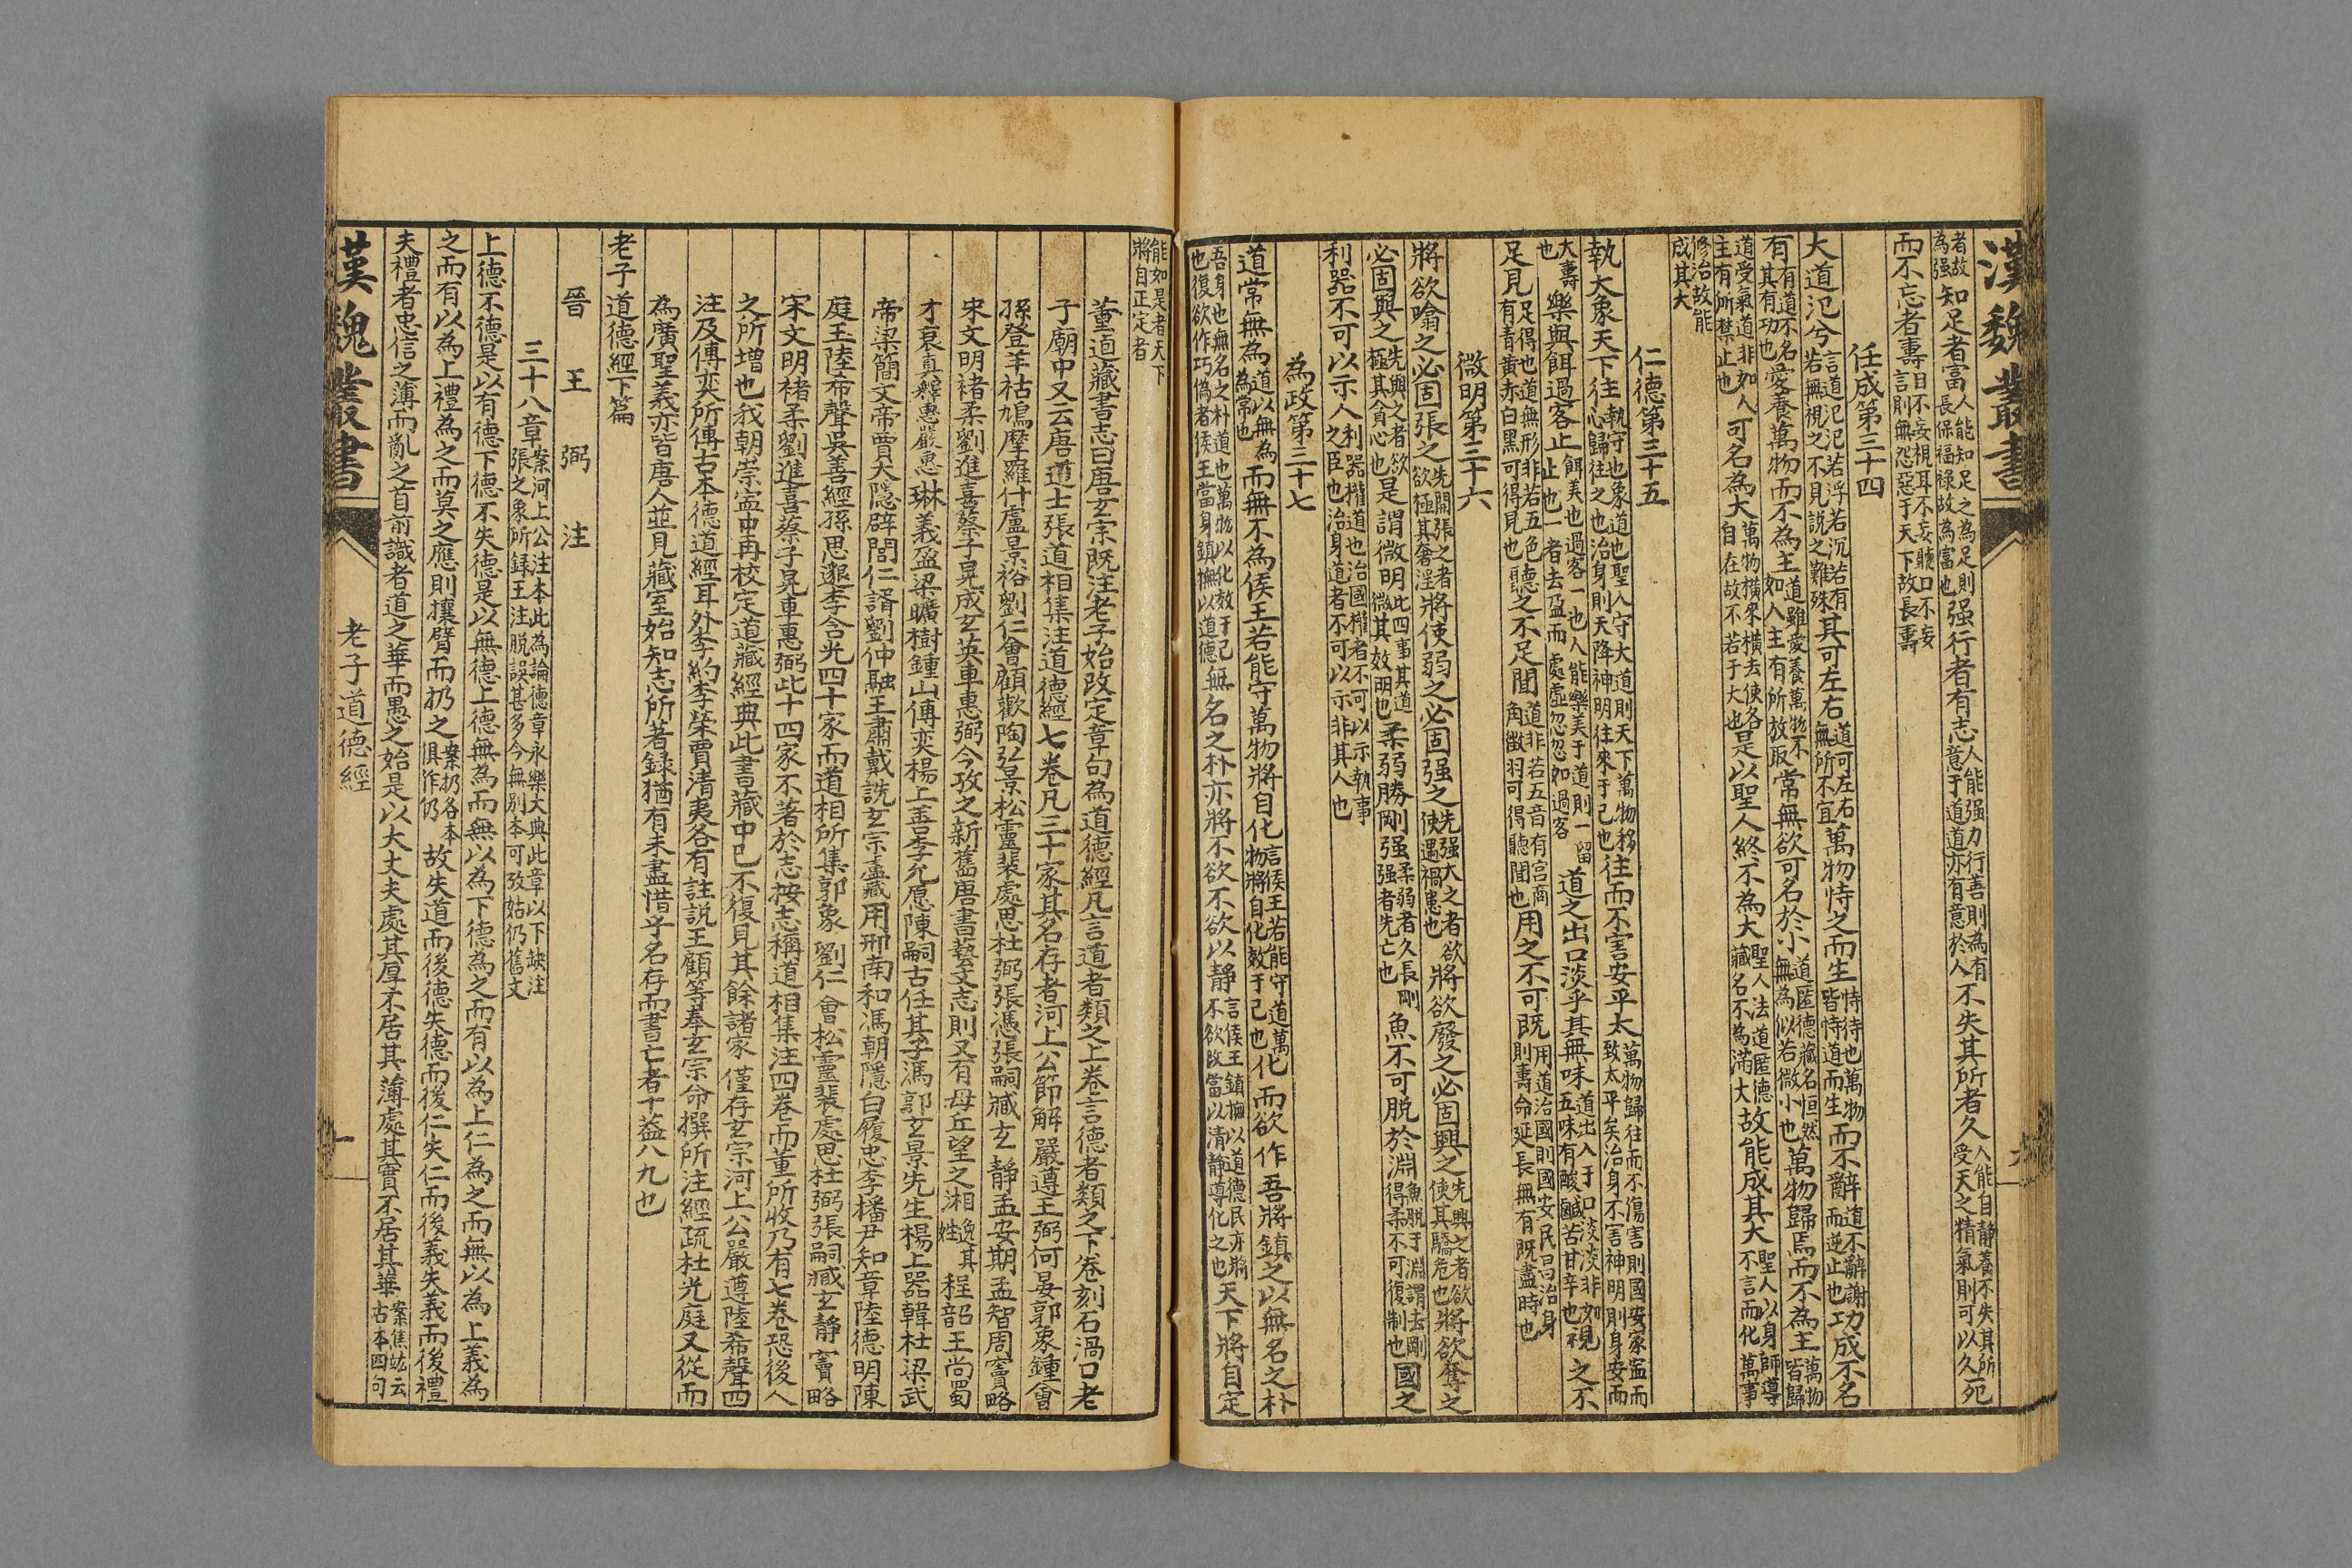 漢魏叢書
者故為强知足者富人能知足之為足則長保福祿故為富也强行者有志人能强力行善則為有意于道道亦有意於人不失其所者久人能自靜養不失其所受天之精氣則可以久死
而不忘者壽目不妄視耳不妄聽口不妄言則無怨惡于天下故長壽
任成第三十四
大道氾兮言道氾氾若浮若沉若有若無視之不見說之難殊其可左右道可左右無所不宜萬物恃之而生恃待也萬物皆恃道而生而不辭道不辭謝而逆止也功成不名
有有道不名其有功也愛養萬物而不為主道雖愛養萬物不如人主有所放取常無欲可名於小道匿德藏名恒然無為似若微小也萬物歸焉而不為主萬物皆歸
道受氣道非如人主有所禁止也可名為大萬物橫來橫去使各自在故不若于大也是以聖人終不為大聖人法道匿德藏名不為滿大故能成其大聖人以身師導不言而化萬事
修治故能成其大
仁德第三十五
執大象天下往執守也象道也聖人守大道則天下萬物移心歸往之也治身則天降神明往來于己也往而不害安平太萬物歸往而不傷害則國安家寍而致太平矣治身不害神明則身安而
大壽也樂與餌過客止餌美也過客一也人能樂美于道則一留止也一者去盈而處虛忽忽如過客道之出口淡乎其無味道出入于口淡淡非如五味有酸鹹苦甘辛也視之不
足見足得也道無形非若五色有青黃赤白黑可得見也聽之不足聞道非若五音有宮商角徵羽可得聽聞也用之不可既用道治國則國安民昌治身則壽命延長無有既盡時也
微明第三十六
將欲噏之必固張之先開張之者欲極其奢淫將使弱之必固强之先强大之者欲使遇禍患也將欲廢之必固興之先興之者欲使其驕危也將欲奪之
必固與之先與之者欲極其貪心也是謂微明此四事其道微其效明也柔弱勝剛强柔弱者久長剛强者先亡也魚不可脫於淵魚脫于淵謂去剛得柔不可復制也國之
利器不可以示人利器權道也治國權者不可以示執事之臣也治身道者不可以示非其人也
為政第三十七
道常無為道以無為為常也而無不為侯王若能守萬物將自化言侯王若能守道萬物將自化效于己也化而欲作吾將鎮之以無名之朴
吾身也無名之朴道也萬物以化效于己也復欲作巧偽者侯王當身鎮撫以道德無名之朴亦將不欲不欲以靜言侯王鎮撫以道德民亦將不欲改當以清靜導化之也天下將自定
能如是者天下將自正定者
董逌藏書志曰唐玄宗既注老子始改定章句為道德經凡言道者類之上卷言德者類之下卷刻石渦口老
子廟中又云唐道士張道相集注道德經七卷凡三十家其名存者河上公節解嚴遵王弼何晏郭象鍾會
孫登羊祜鳩摩羅什盧景裕劉仁會顧歡陶弘景松靈裴處思杜弼張憑張嗣臧玄靜孟安期孟智周竇略
宋文明褚柔劉進喜蔡子晃成玄英車惠弼今攷之新舊唐書藝文志則又有毋丘望之湘逸其姓程韶王尚蜀
才袁真釋惠嚴惠琳義盈梁曠樹鍾山傅奕楊上善李允愿陳嗣古任其子馮郭玄景先生楊上器韓杜梁武
帝梁簡文帝賈大隱辟閭仁諝劉仲融王肅戴詵玄宗盧藏用邢南和馮朝隱白履忠李播尹知章陸德明陳
庭玉陸希聲吳善經孫思邈李含光四十家而道相所集郭象劉仁會松靈裴處思杜弼張嗣臧玄靜竇略
宋文明褚柔劉進喜蔡子晃車惠弼此十四家不著於志按志稱道相集注四卷而董所收乃有七卷恐後人
之所增也我朝崇寍中再校定道藏經典此書藏中已不復見其餘諸家僅存玄宗河上公嚴遵陸希聲四
注及傅奕所傳古本德道經耳外李約李榮賈清夷各有註說王顧等奉玄宗命撰所注經疏杜光庭又從而
為廣聖義亦皆唐人並見藏室始知志所著録猶有未盡惜乎名存而書亡者十葢八九也
老子道德經下篇
晉王弼注
三十八章案河上公注本此為論德章永樂大典此章以下缺注張之象所録王注脱誤甚多今無别本可攷姑仍舊文
上德不德是以有德下德不失德是以無德上德無為而無以為下德為之而有以為上仁為之而無以為上義為
之而有以為上禮為之而莫之應則攘臂而扔之案扔各本俱作仍故失道而後德失德而後仁失仁而後義失義而後禮
夫禮者忠信之薄而亂之首前識者道之華而愚之始是以大丈夫處其厚不居其薄處其實不居其華案焦竑云古本四句
漢魏叢書
老子道德經